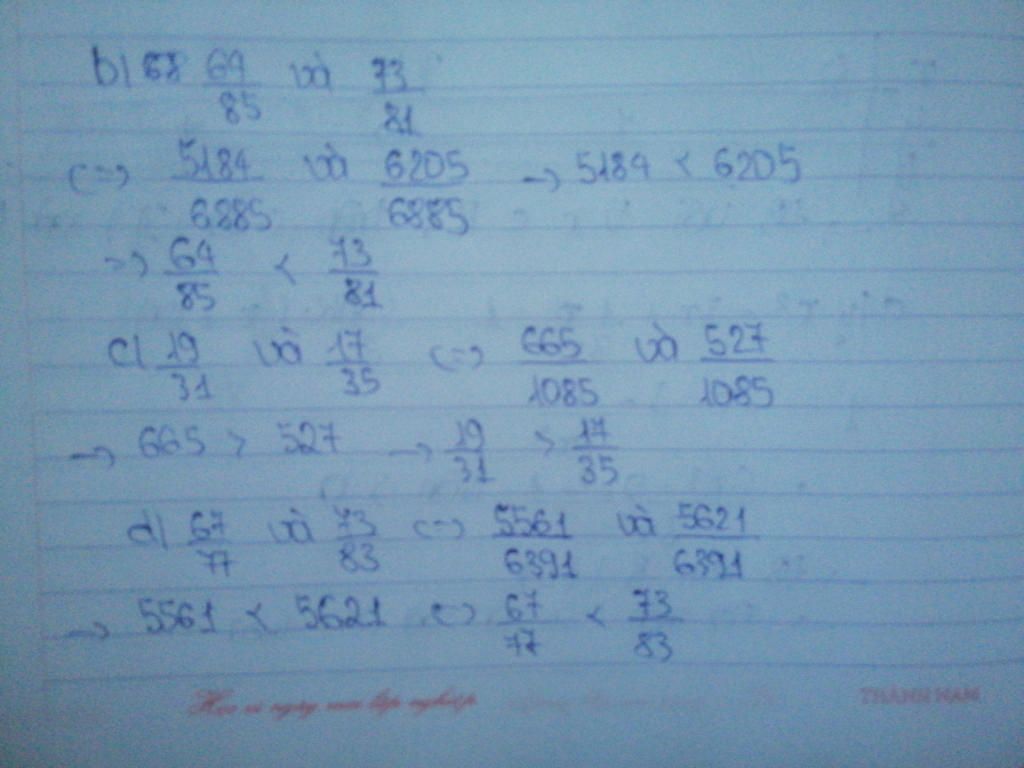 b) 64/85 và 73/81
<=> 5184/6885 và 6205/6885 -> 5184 < 6205
=> 64/85 < 73/81
c) 19/31 và 17/35 <=> 665/1085 và 527/1085
-> 665 > 527 -> 19/31 > 17/35
d) 67/77 và 73/83 <=> 5561/6391 và 5621/6391
-> 5561 < 5621 <=> 67/77 < 73/83
Học vì ngày mai lập nghiệp THÀNH NAM